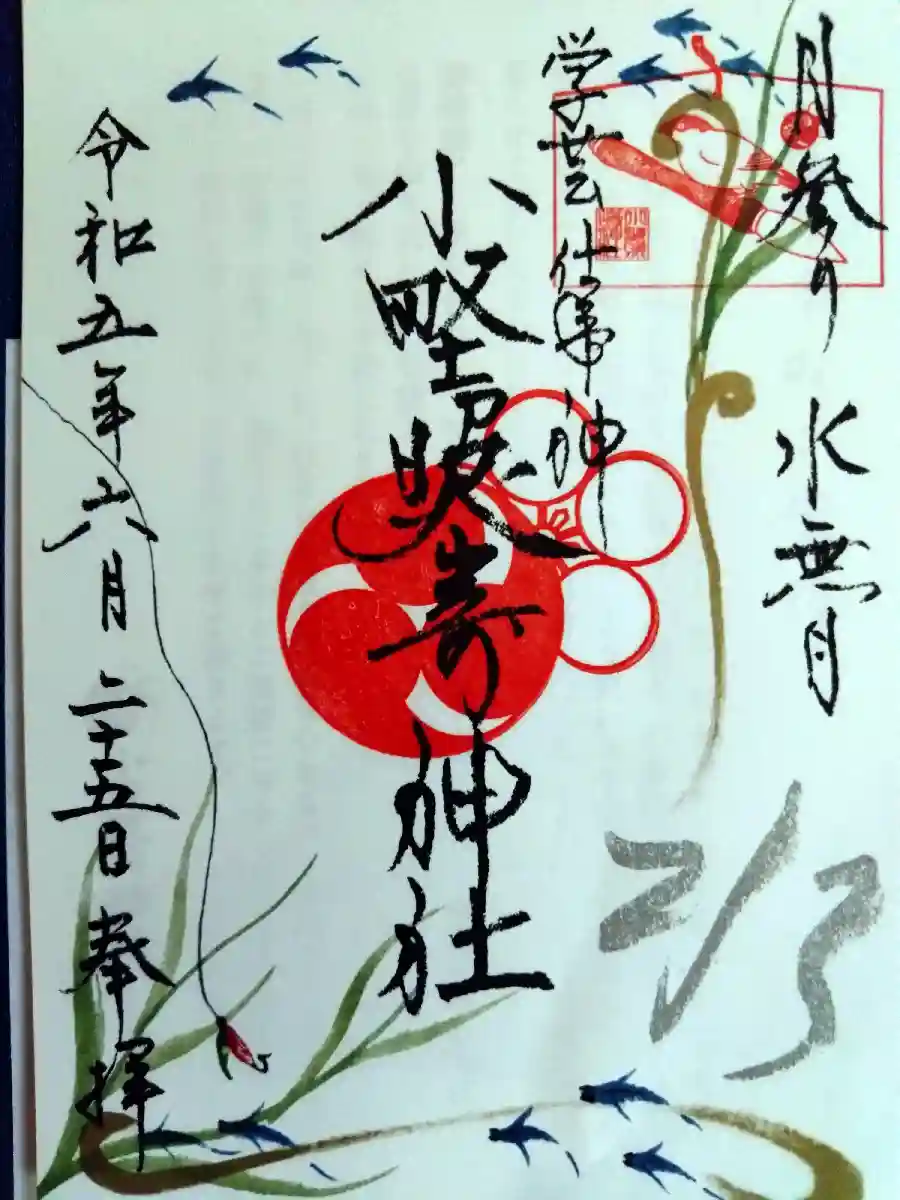 月参り 水無月
学芸 仕事神
小野照崎神社
令和五年六月二十五日 奉拝
2/3